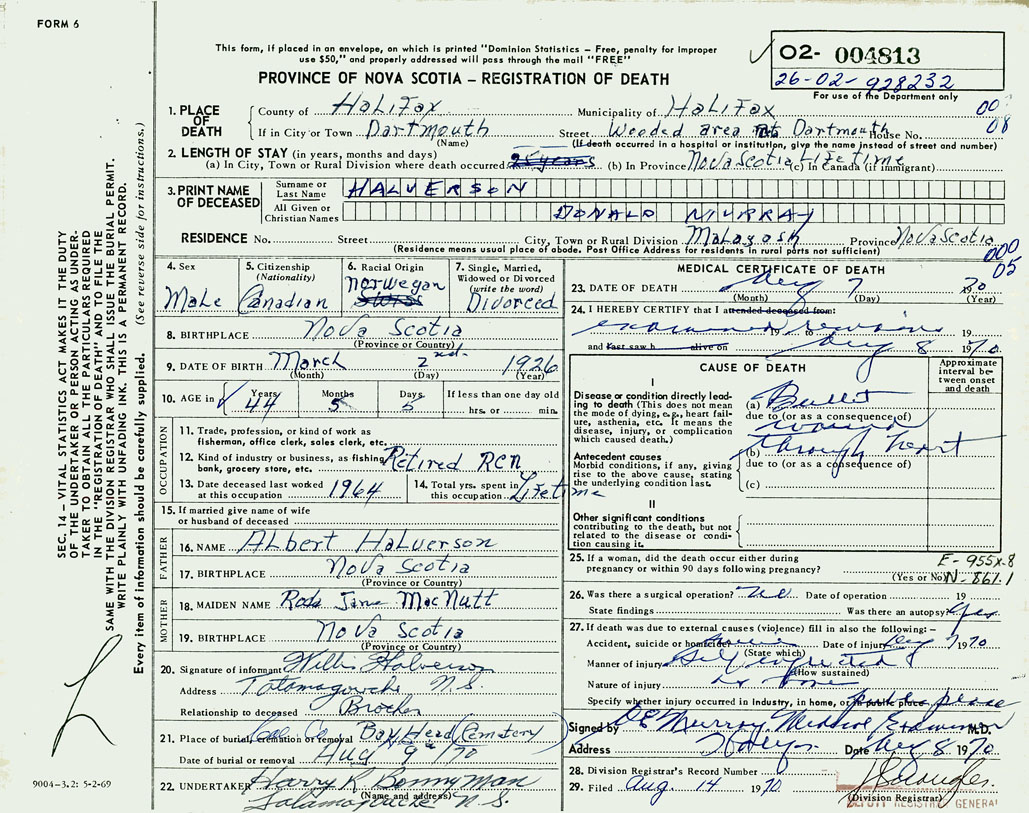 FORM 6
This form, if placed in an envelope, on which is printed "Dominion Statistics – Free, penalty for improper
use $50," and properly addressed will pass through the mail "FREE"
02- 004813
26-02-928232
For use of the Department only
PROVINCE OF NOVA SCOTIA – REGISTRATION OF DEATH
1. PLACE OF DEATH
County of Halifax Municipality of Halifax 00
If in City or Town Dartmouth Street Wooded area Dartmouth House No. 08
(Name) (If death occurred in a hospital or institution, give the name instead of street and number)
2. LENGTH OF STAY (in years, months and days)
(a) In City, Town or Rural Division where death occurred 25 years (b) In Province Nova Scotia Lifetime (c) In Canada (if immigrant)
3. PRINT NAME OF DECEASED
Surname or Last Name HALVERSON
All Given or Christian Names DONALD MURRAY
RESIDENCE No. Street City, Town or Rural Division Malagash Province Nova Scotia
(Residence means usual place of abode. Post Office Address for residents in rural parts not sufficient)
000
05
4. Sex Male
5. Citizenship (Nationality) Canadian
6. Racial Origin Norwegan
7. Single, Married, Widowed or Divorced (write the word) Divorced
8. BIRTHPLACE Nova Scotia
(Province or Country)
9. DATE OF BIRTH March 2nd 1926
(Month) (Day) (Year)
10. AGE in Years 44 Months 5 Days 5 If less than one day old hrs. or min.
OCCUPATION
11. Trade, profession, or kind of work as
fisherman, office clerk, sales clerk, etc.
12. Kind of industry or business, as fishing, bank, grocery store, etc. Retired RCN
13. Date deceased last worked at this occupation 1964
14. Total yrs. spent in this occupation Lifetime
15. If married give name of wife
or husband of deceased
FATHER
16. NAME Albert Halverson
17. BIRTHPLACE Nova Scotia
(Province or Country)
MOTHER
18. MAIDEN NAME Jane MacNutt
19. BIRTHPLACE Nova Scotia
(Province or Country)
20. Signature of informant Willis Halverson
Address Tatamagouche N.S.
Relationship to deceased Brother
21. Place of burial, cremation or removal Bay Head Cemetery
Date of burial or removal Aug 9th /70
22. UNDERTAKER Harry R Bonnyman
(Name and address) Tatamagouche N.S.
MEDICAL CERTIFICATE OF DEATH
23. DATE OF DEATH Aug 7 1970
(Month) (Day) (Year)
24. I HEREBY CERTIFY that I attended deceased from:
examined remains 19 to 19
and last saw h alive on Aug 8 1970
CAUSE OF DEATH
Approximate interval between onset and death
I
Disease or condition directly leading to death (This does not mean the mode of dying, e.g., heart failure, asthenia, etc. It means the disease, injury, or complication which caused death.)
(a) Bullet
due to (or as a consequence of)
wound
(b) through heart
due to (or as a consequence of)
(c)
Antecedent causes
Morbid conditions, if any, giving rise to the above cause, stating the underlying condition last.
II
Other significant conditions
contributing to the death, but not related to the disease or condition causing it.
25. If a woman, did the death occur either during
pregnancy or within 90 days following pregnancy?
(Yes or No)
E-955x-8
N-861.1
26. Was there a surgical operation? no Date of operation 19
State findings Was there an autopsy? yes
27. If death was due to external causes (violence) fill in also the following: –
Accident, suicide or homicide? Date of injury Aug 7 1970
(State which)
Manner of injury Self inflicted
(How sustained)
Nature of injury
Specify whether injury occurred in Industry, in home, or in public place
Signed by Murray Medical Examiner M.D.
Address Date Aug 8 1970
28. Division Registrar's Record Number
29. Filed Aug. 14 1970
(Division Registrar)
DEPUTY REGISTRAR GENERAL
SEC. 14 – VITAL STATISTICS ACT MAKES IT THE DUTY
OF THE UNDERTAKER OR PERSON ACTING AS UNDER-
TAKER TO OBTAIN ALL THE PARTICULARS REQUIRED
IN THE "REGISTRATION OF DEATH" AND TO FILE THE
SAME WITH THE DIVISION REGISTRAR WHO SHALL ISSUE THE BURIAL PERMIT.
WRITE PLAINLY WITH UNFADING INK. THIS IS A PERMANENT RECORD.
Every item of information should be carefully supplied. (See reverse side for instructions.)
9004-3.2: 5-2-69